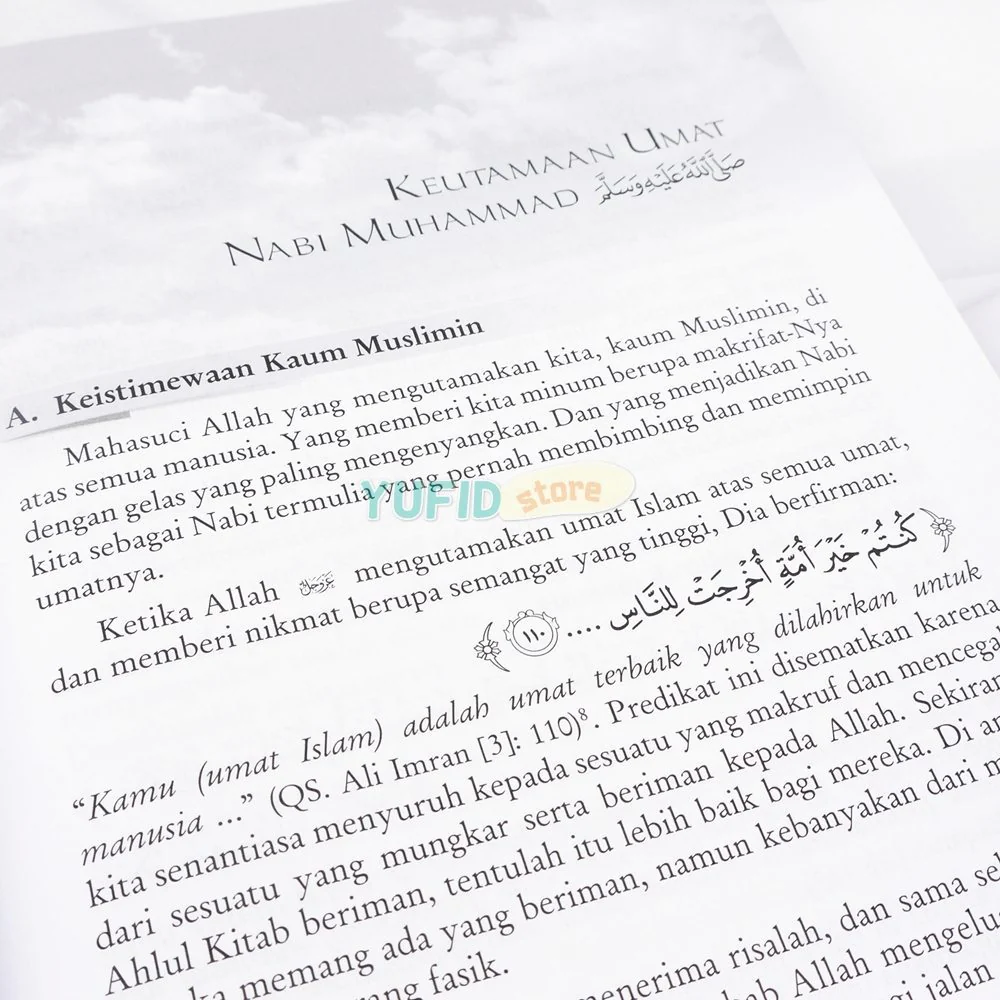 KEUTAMAAN UMAT
NABI MUHAMMAD صَلَّى اللَّهُ عَلَيْهِ وَسَلَّمَ
A. Keistimewaan Kaum Muslimin
Mahasuci Allah yang mengutamakan kita, kaum Muslimin, di
atas semua manusia. Yang memberi kita minum berupa makrifat-Nya
dengan gelas yang paling mengenyangkan. Dan yang menjadikan Nabi
kita sebagai Nabi termulia yang pernah membimbing dan memimpin
umatnya.
YUFID store
Ketika Allah عَزَّ وَجَلَّ mengutamakan umat Islam atas semua umat,
dan memberi nikmat berupa semangat yang tinggi, Dia berfirman:
كُنْتُمْ خَيْرَ أُمَّةٍ أُخْرِجَتْ لِلنَّاسِ .... ١١٠
“Kamu (umat Islam) adalah umat terbaik yang dilahirkan untuk
manusia ...” (QS. Ali Imran [3]: 110)⁸. Predikat ini disematkan karena
kita senantiasa menyuruh kepada sesuatu yang makruf dan mencega
dari sesuatu yang mungkar serta beriman kepada Allah. Sekiran
Ahlul Kitab beriman, tentulah itu lebih baik bagi mereka. Di an
ka memang ada yang beriman, namun kebanyakan dari m
ang fasik.
menerima risalah, dan sama se
Allah mengelu
jalan